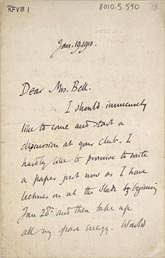 REVB 1
8010.5.590
Jan. 19. 1910.
Dear Mrs. Bell.
I should immensely
like to come and start a
discussion at your club. I
hardly like to promise to write
a paper just now as I have
lectures on at the Slade beginning
Jan 28th and these take up
all my spare energy. Would